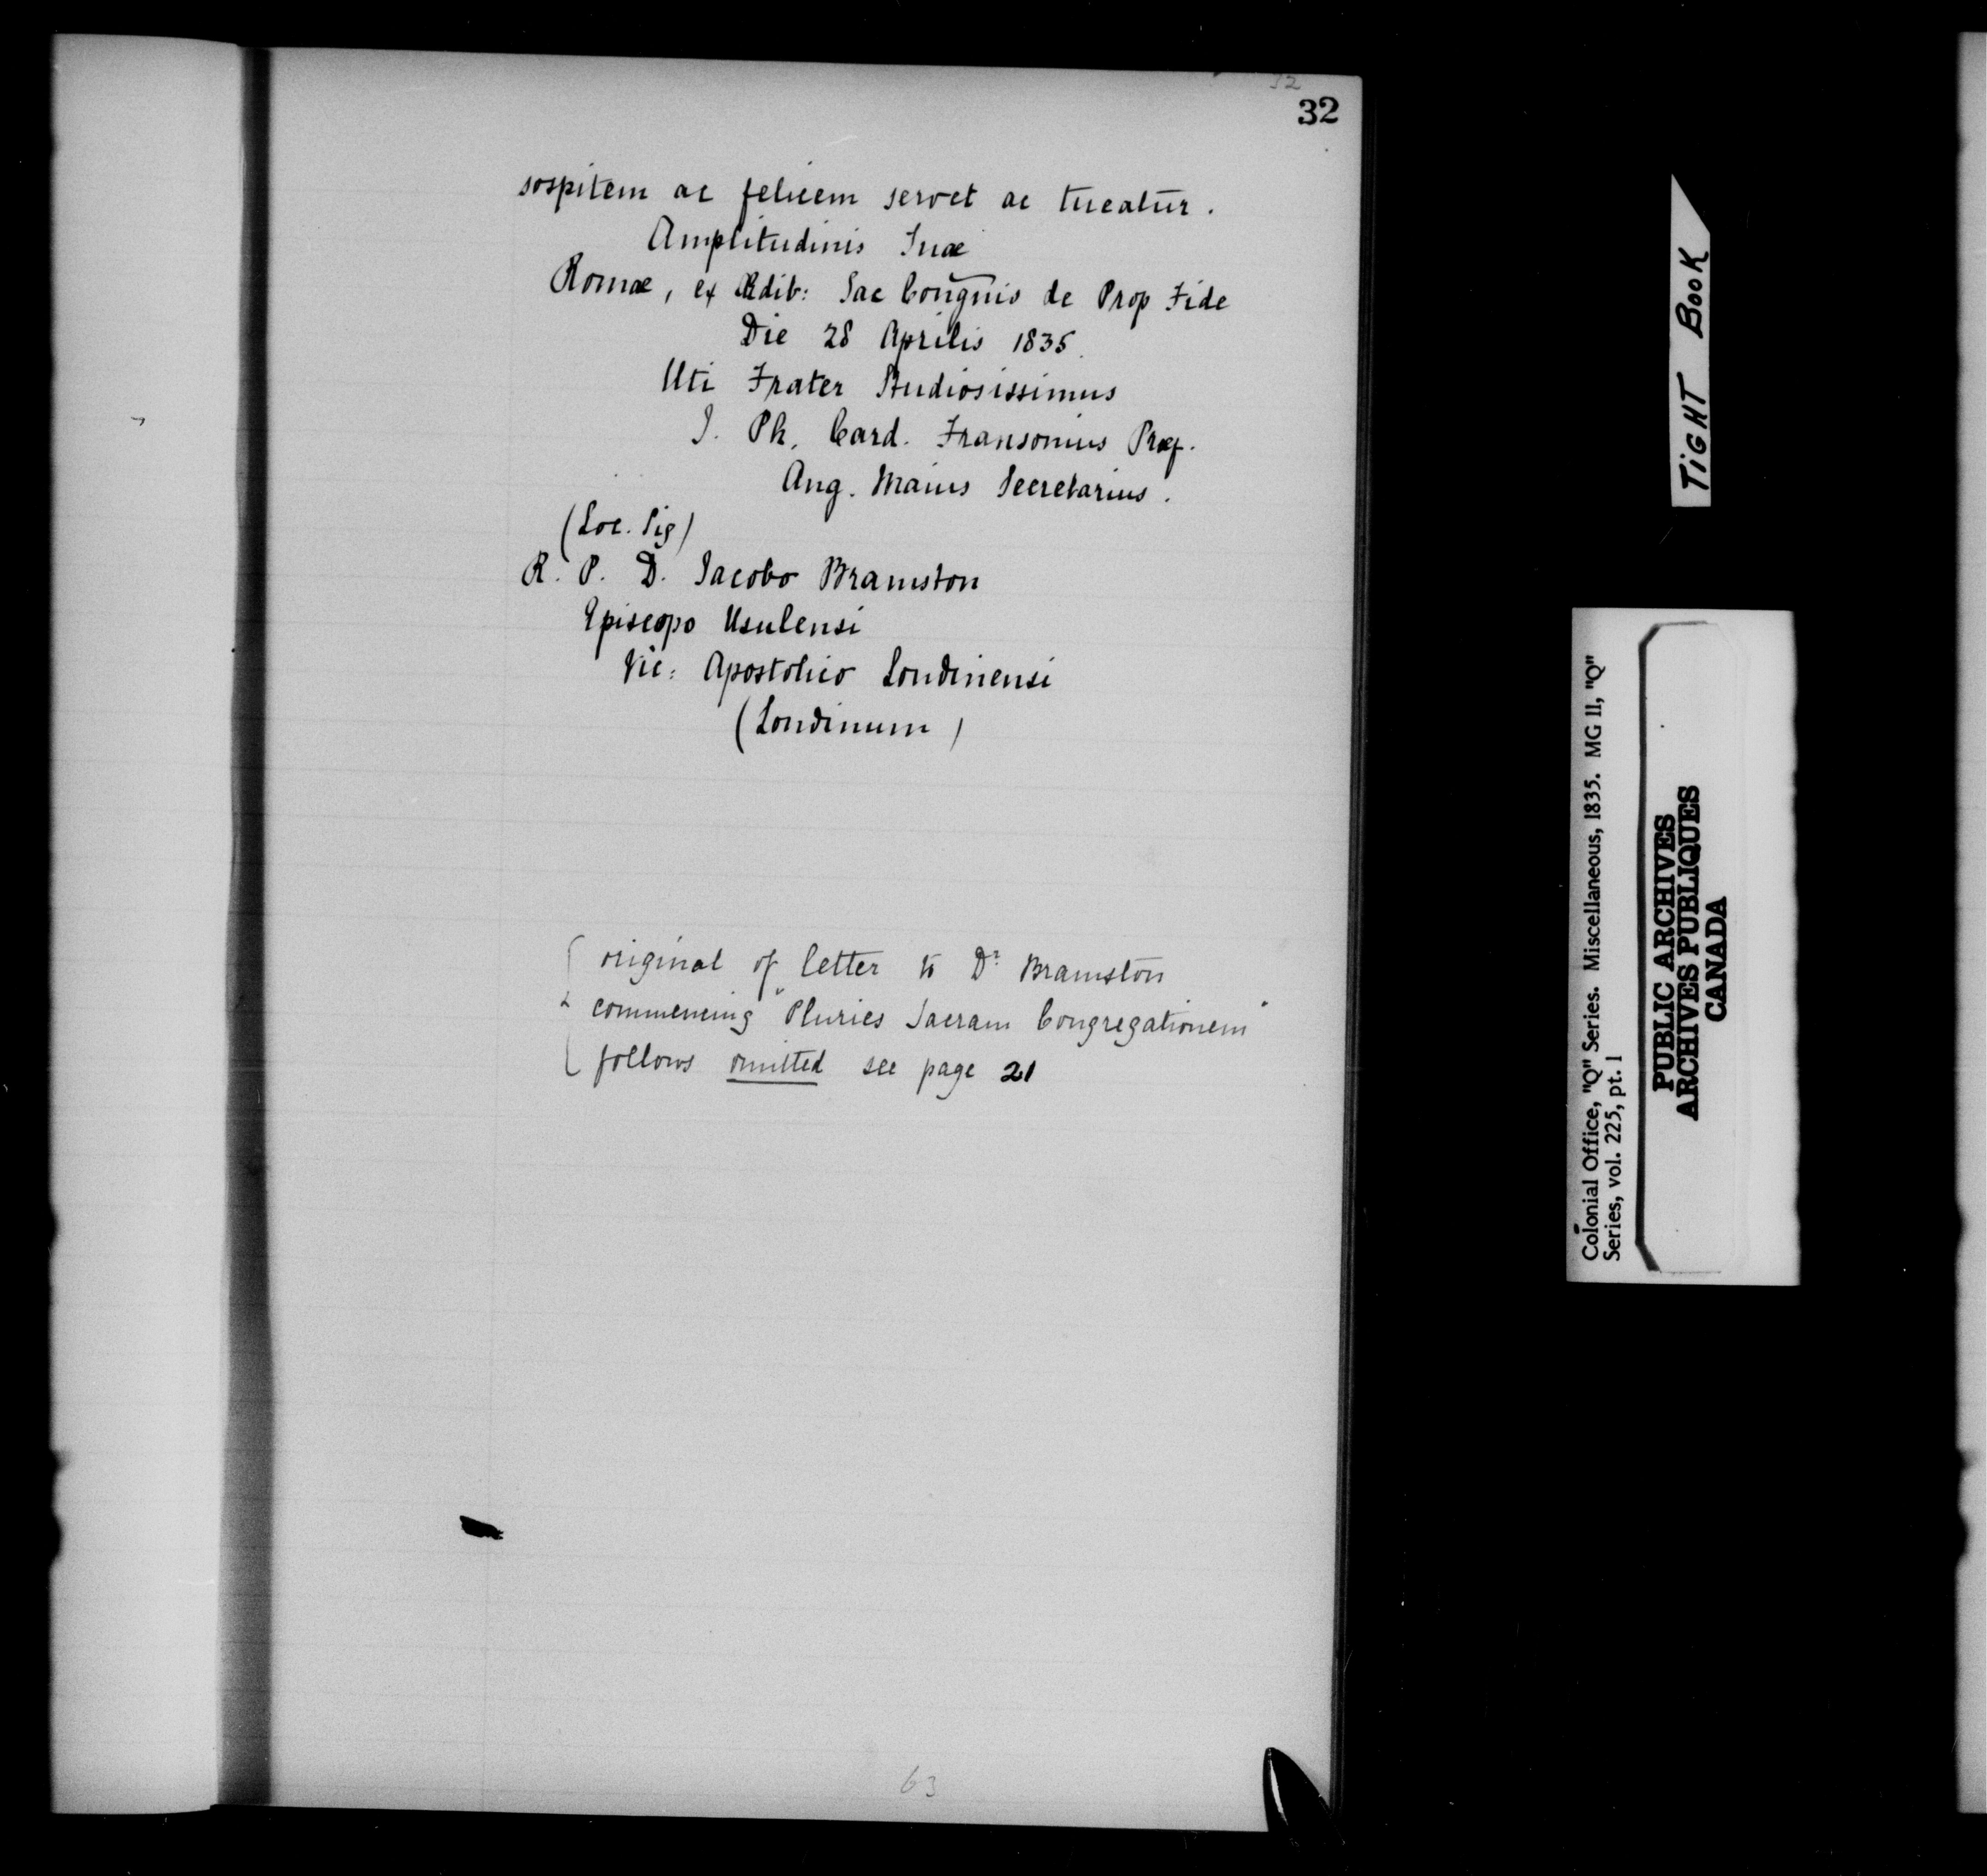 32
32
sospitem ac felicem servet ac tueatur.
Amplitudinis Tuæ
Romæ, ex Ædib: Sac Congnis de Prop Fide
Die 28 Aprilis 1835.
Uti Frater Studiosissimus
J. Ph. Card. Fransonius Præf.
Ang. Maius Secretarius.
(Loc. Sig)
R. P. D. Jacobo Bramston
Episcopo Usulensi
Vic: Apostolico Londinensi
(Londinum)
original of letter to Dr Bramston
commencing "Pluries Sacram Congregationem"
follows omitted see page 21
63
TIGHT BOOK
Colonial Office, "Q" Series. Miscellaneous, 1835. MG 11, "Q"
Series, vol. 225, pt. 1
PUBLIC ARCHIVES
ARCHIVES PUBLIQUES
CANADA